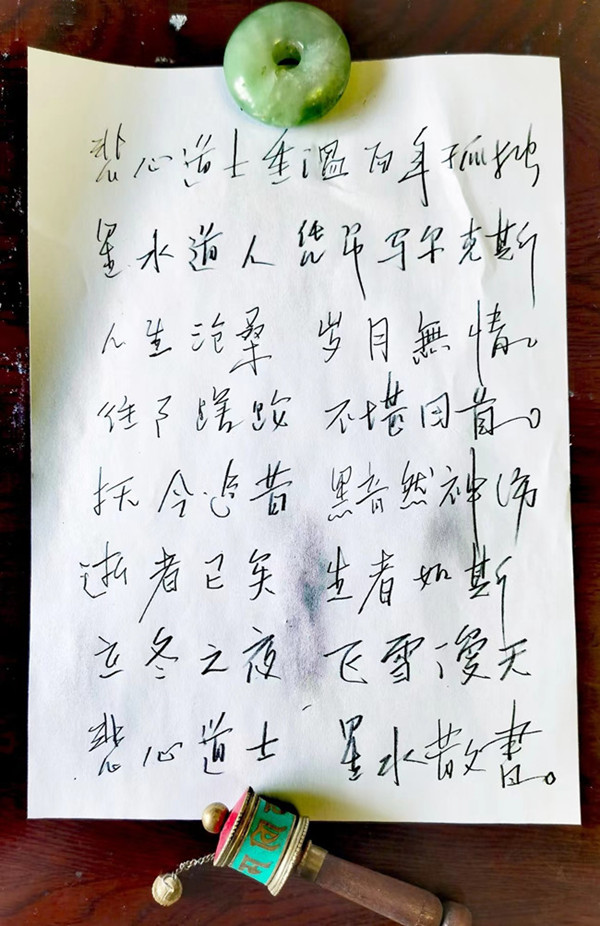 悲心道士重温百年孤独
星水道人凭吊马尔克斯
人生沧桑 岁月無情。
往事蹉跎 不堪回首。
抚今追昔 黯然神伤
逝者已矣 生者如斯
立冬之夜 飞雪漫天
悲心道士 星水散書。